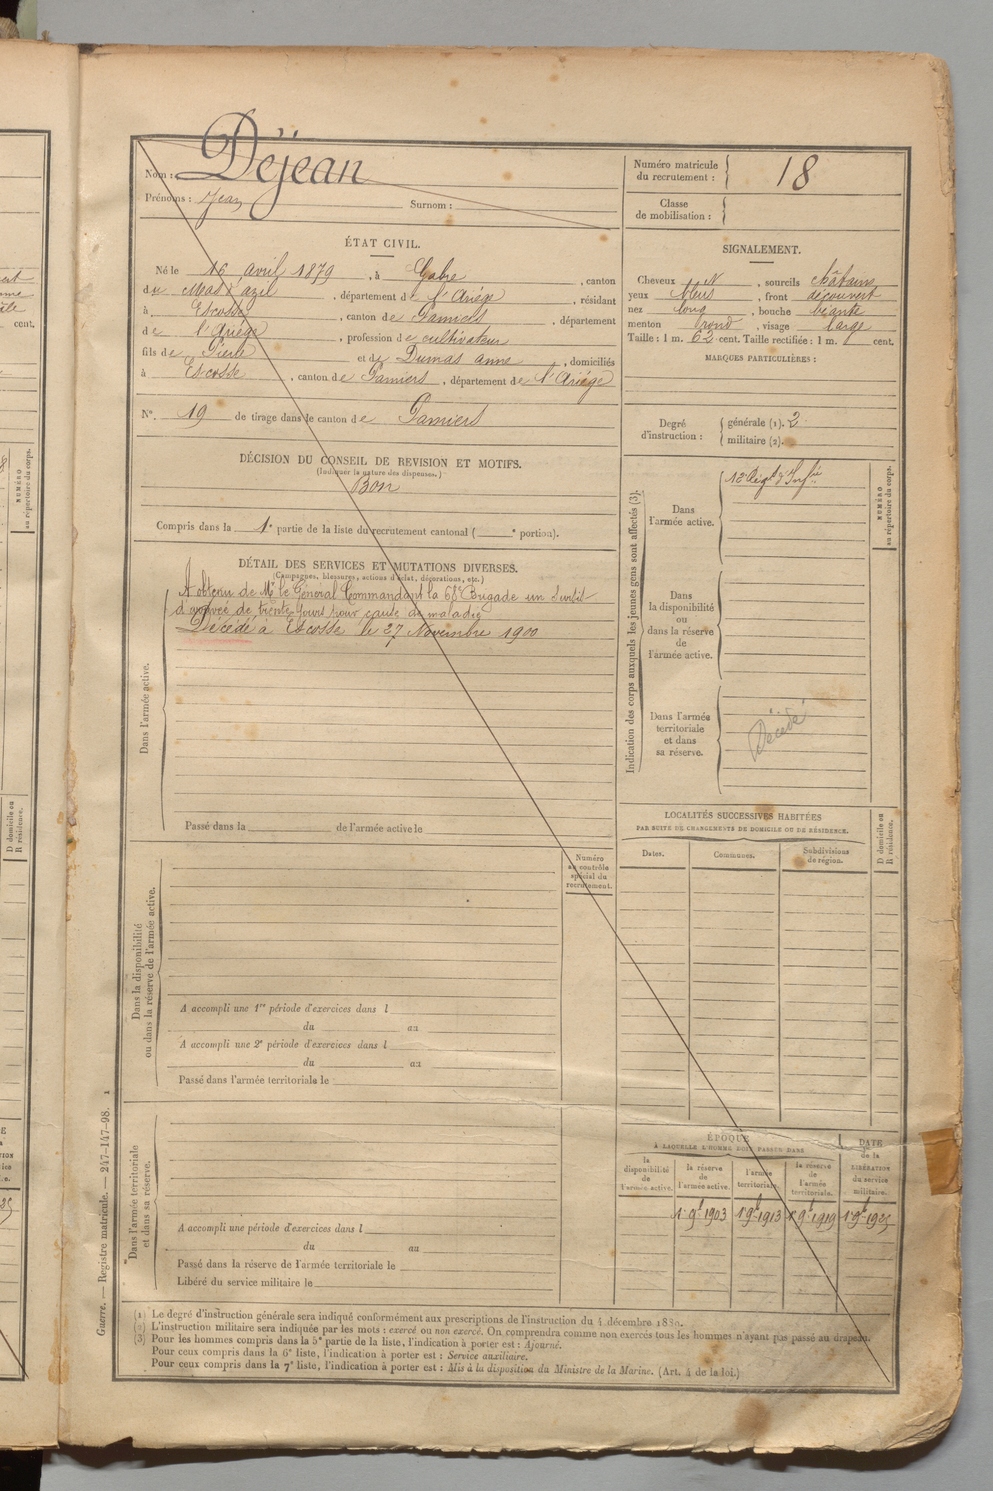 Nom : Déjean
Prénoms : Jean Surnom :
Numéro matricule du recrutement : 18
Classe de mobilisation :
ÉTAT CIVIL.
Né le 16 avril 1879, à Gabre, canton
du Mas d'azil, département de l'Ariége, résidant
à Escosse, canton de Pamiers, département
de l'Ariége, profession de cultivateur
fils de Pierre et de Dumas anne, domiciliés
à Escosse, canton de Pamiers, département de l'Ariége
N°. 19 de tirage dans le canton de Pamiers
SIGNALEMENT.
Cheveux N, sourcils châtains
yeux bleus, front découvert
nez long, bouche béante
menton rond, visage large
Taille : 1 m. 62 cent. Taille rectifiée : 1 m. cent.
MARQUES PARTICULIÈRES :
Degré d'instruction : générale (1). 2
militaire (2).
DÉCISION DU CONSEIL DE REVISION ET MOTIFS.
(Indiquer la nature des dispenses.)
Bon
Compris dans la 1e partie de la liste du recrutement cantonal ( e portion).
DÉTAIL DES SERVICES ET MUTATIONS DIVERSES.
(Campagnes, blessures, actions d'éclat, décorations, etc.)
Dans l'armée active.
A obtenu de Mr le Général Commandant la 68e Brigade un Sursis
d'arrivée de trente jours pour cause de maladie
Décédé à Escosse le 27 Novembre 1900
Passé dans la de l'armée active le
Indication des corps auxquels les jeunes gens sont affectés (3).
NUMÉRO au répertoire du corps.
Dans l'armée active.
Dans la disponibilité ou dans la réserve de l'armée active.
Dans l'armée territoriale et dans sa réserve.
Décédé
LOCALITÉS SUCCESSIVES HABITÉES
PAR SUITE DE CHANGEMENTS DE DOMICILE OU DE RÉSIDENCE.
D domicile ou R résidence.
Dates. Communes. Subdivisions de région.
Numéro au contrôle spécial du recrutement.
Dans la disponibilité ou dans la réserve de l'armée active.
A accompli une 1re période d'exercices dans l
du au
A accompli une 2e période d'exercices dans l
du au
Passé dans l'armée territoriale le
Dans l'armée territoriale et dans sa réserve.
A accompli une période d'exercices dans l
du au
Passé dans la réserve de l'armée territoriale le
Libéré du service militaire le
ÉPOQUE
À LAQUELLE L'HOMME DOIT PASSER DANS
la disponibilité de l'armée active.
la réserve de l'armée active.
l'armée territoriale.
la réserve de l'armée territoriale.
DATE de la LIBÉRATION du service militaire.
1r 9bre 1903 1r 9bre 1913 1r 9bre 1919 1r 9bre 1925
(1) Le degré d'instruction générale sera indiqué conformément aux prescriptions de l'instruction du 4 décembre 1889.
(2) L'instruction militaire sera indiquée par les mots : exercé ou non exercé. On comprendra comme non exercés tous les hommes n'ayant pas passé au drapeau.
(3) Pour les hommes compris dans la 5e partie de la liste, l'indication à porter est : Ajourné.
Pour ceux compris dans la 6e liste, l'indication à porter est : Service auxiliaire.
Pour ceux compris dans la 7e liste, l'indication à porter est : Mis à la disposition du Ministre de la Marine. (Art. 4 de la loi.)
Guerre. — Registre matricule. — 247-147-98. 1